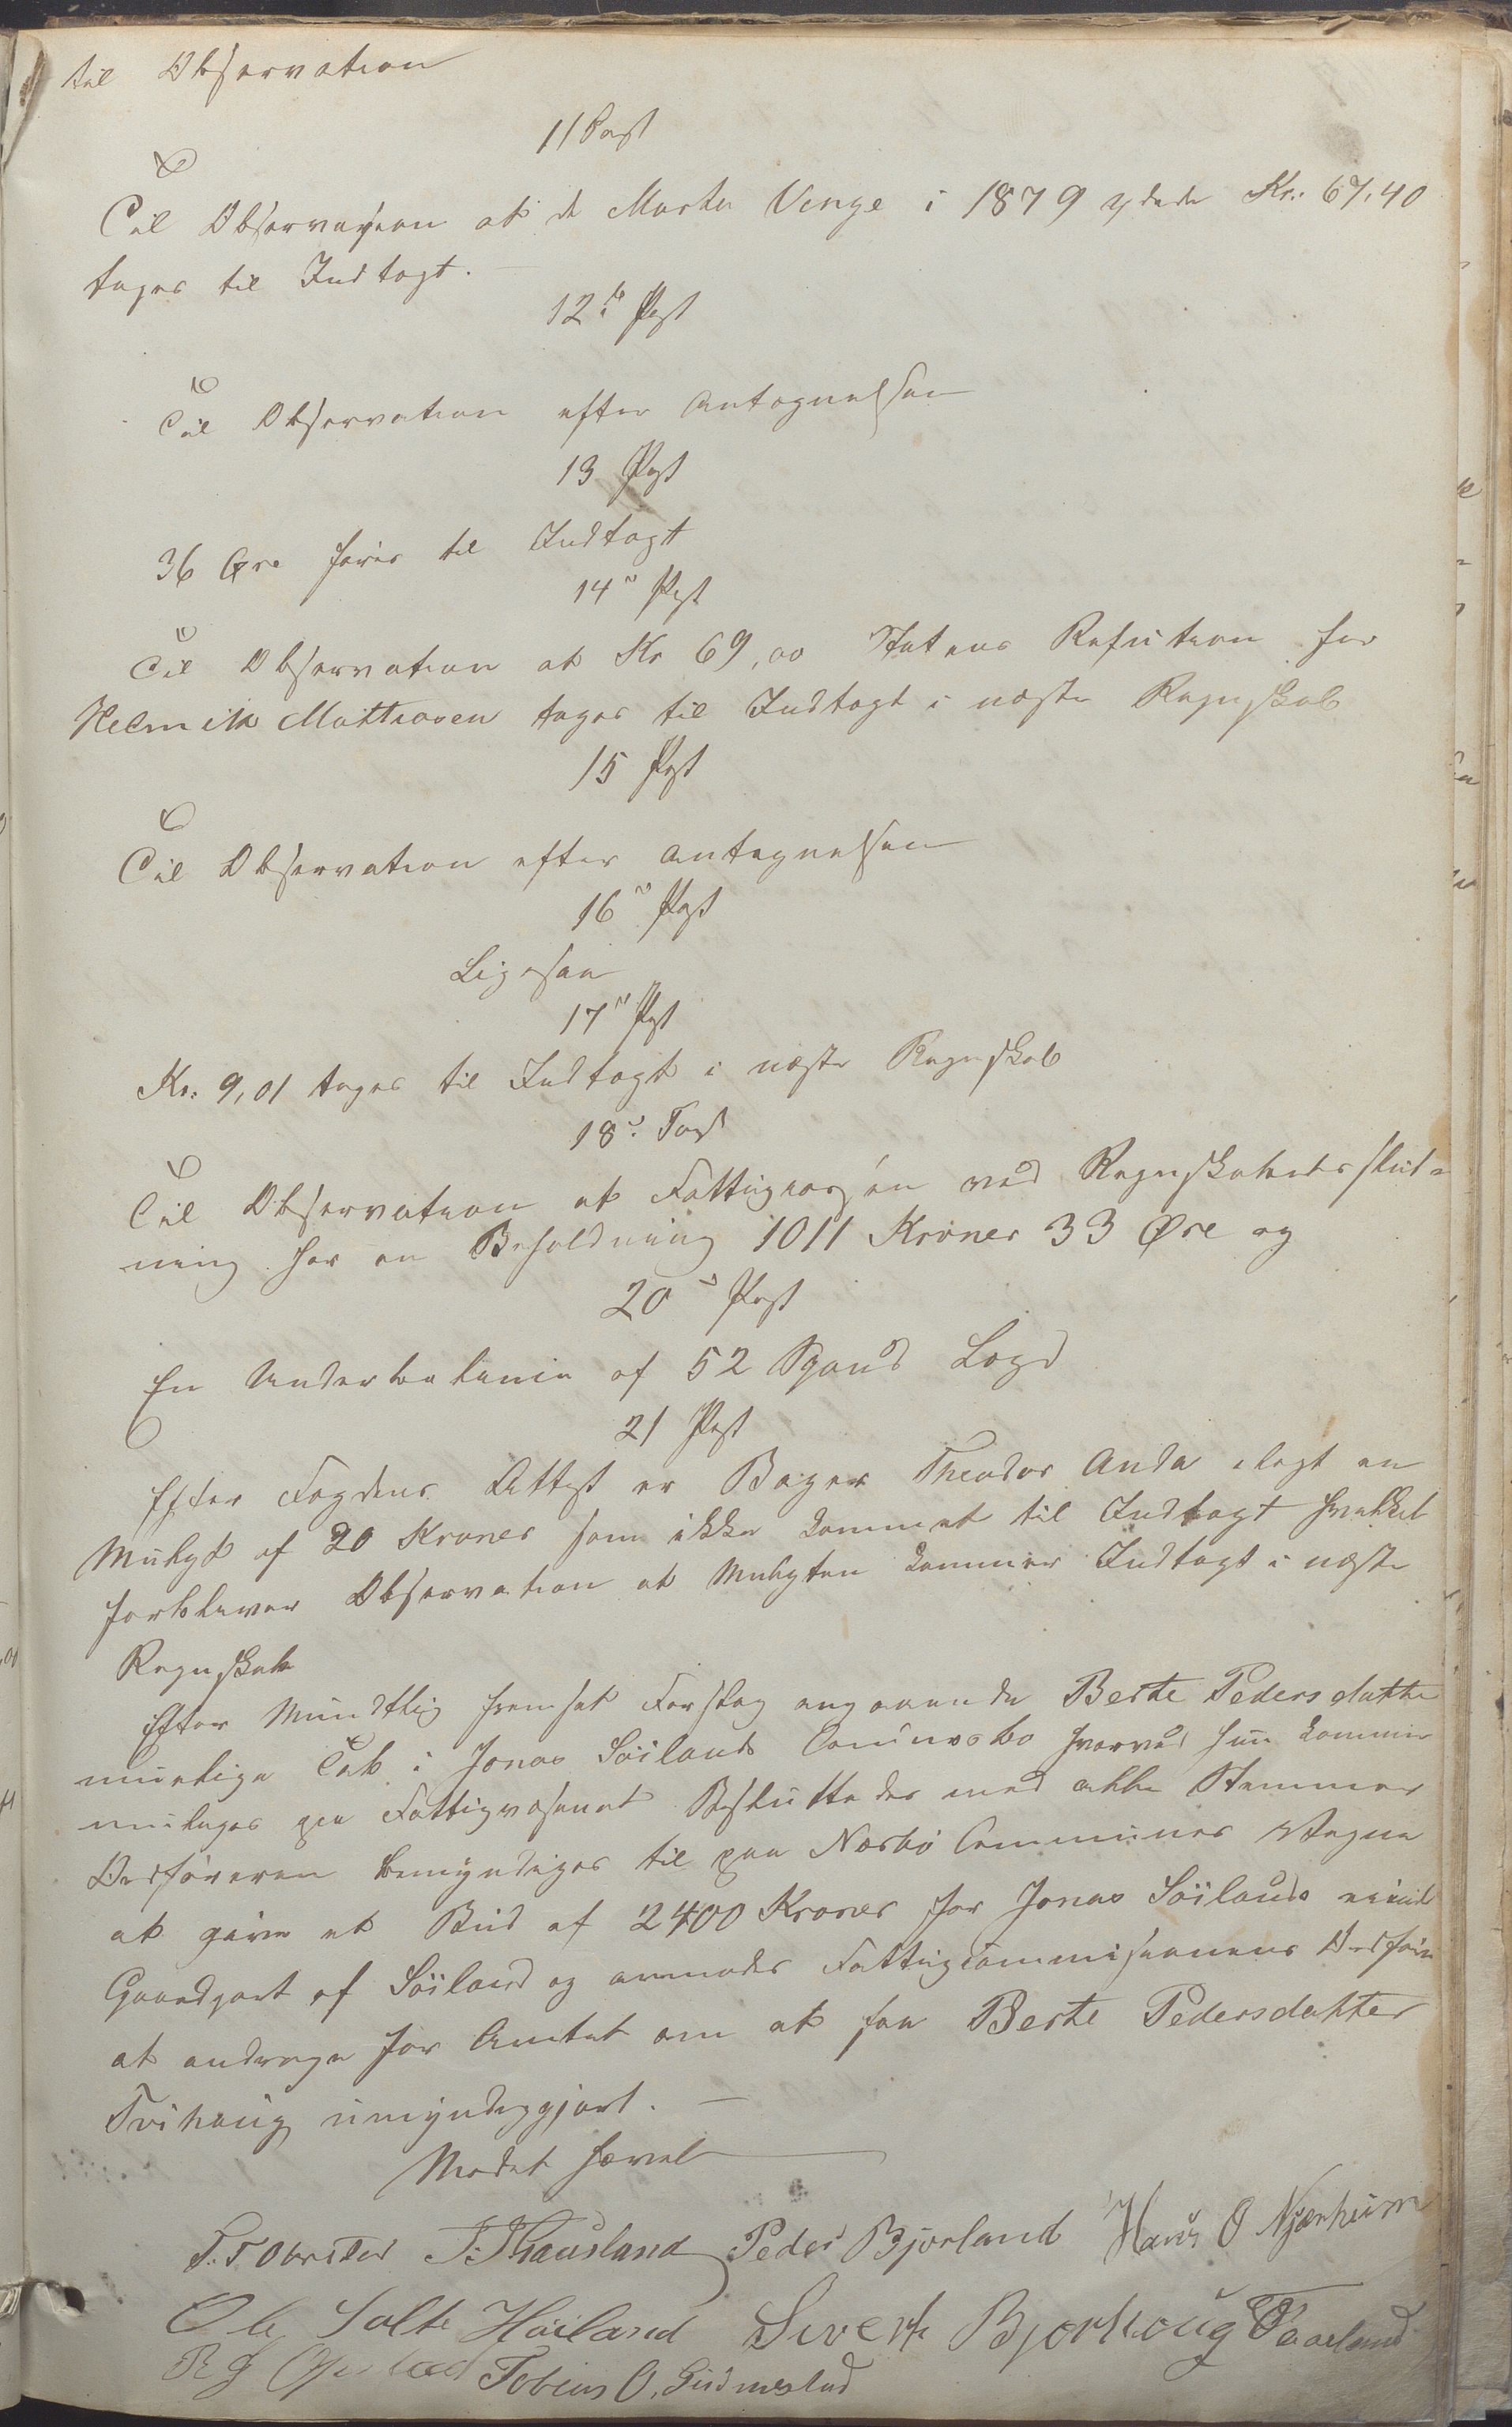 til Observation
11 Post
Til Observasion at de Marta Venge i 1879 ydede Kr: 67,40
tages til Indtægt.
12te Post
Til Observation efter Antagnelsen
13 Post
36 Øre føres til Indtægt
14" Post
Til Observation at Kr 69,00 Statens Refution for
Helmik Mattiasen tages til Indtægt i næste Regnskab
15 Post
Til Observation efter Antegnelsen
16" Post
Ligesaa
17" Post
Kr: 9,01 tages til Indtægt i næste Regnskab
18". Post
Til Observation at Fattigkassen ved Regnskabets slut-
ning har en Beholdning 1011 Kroner 33 Øre og
20" Post
En Underbalance af 52 Spand Lægd
21 Post
Efter Fogdens Attest er Bager Theodor Anda ilagt en
Mulgt af 20 Kroner som ikke kommet til Indtægt hvilket
forbliver Observation at Mulgten kommer Indtægt i næste
Regnskab
Efter Mundtlig fremsat Forslag angaaende Berte Pedersdatter
muelige Tab i Jonas Söilands Concursbo hvorved hun kommer
muligens paa Fattigvæsenet Besluttedes med alle Stemmer
Ordføreren bemyndiges til paa Nærbö Communes Vegne
at give et Bud af 2400 Kroner for Jonas Söilands
Gaardpart af Söiland og anmodes Fattigcommisionens Ordfører
at andrage for Amtet om at faa Berte Pedersdatter
Tvihaug umyndiggjort. —
Mødet hævet
T. T Obrestad T. Thausland Peder Bjorland Hans O Njærheim
Ole Salte Höiland Sivert Bjorhoug Vaaland
R J Opstad Tobias O. Gudmestad